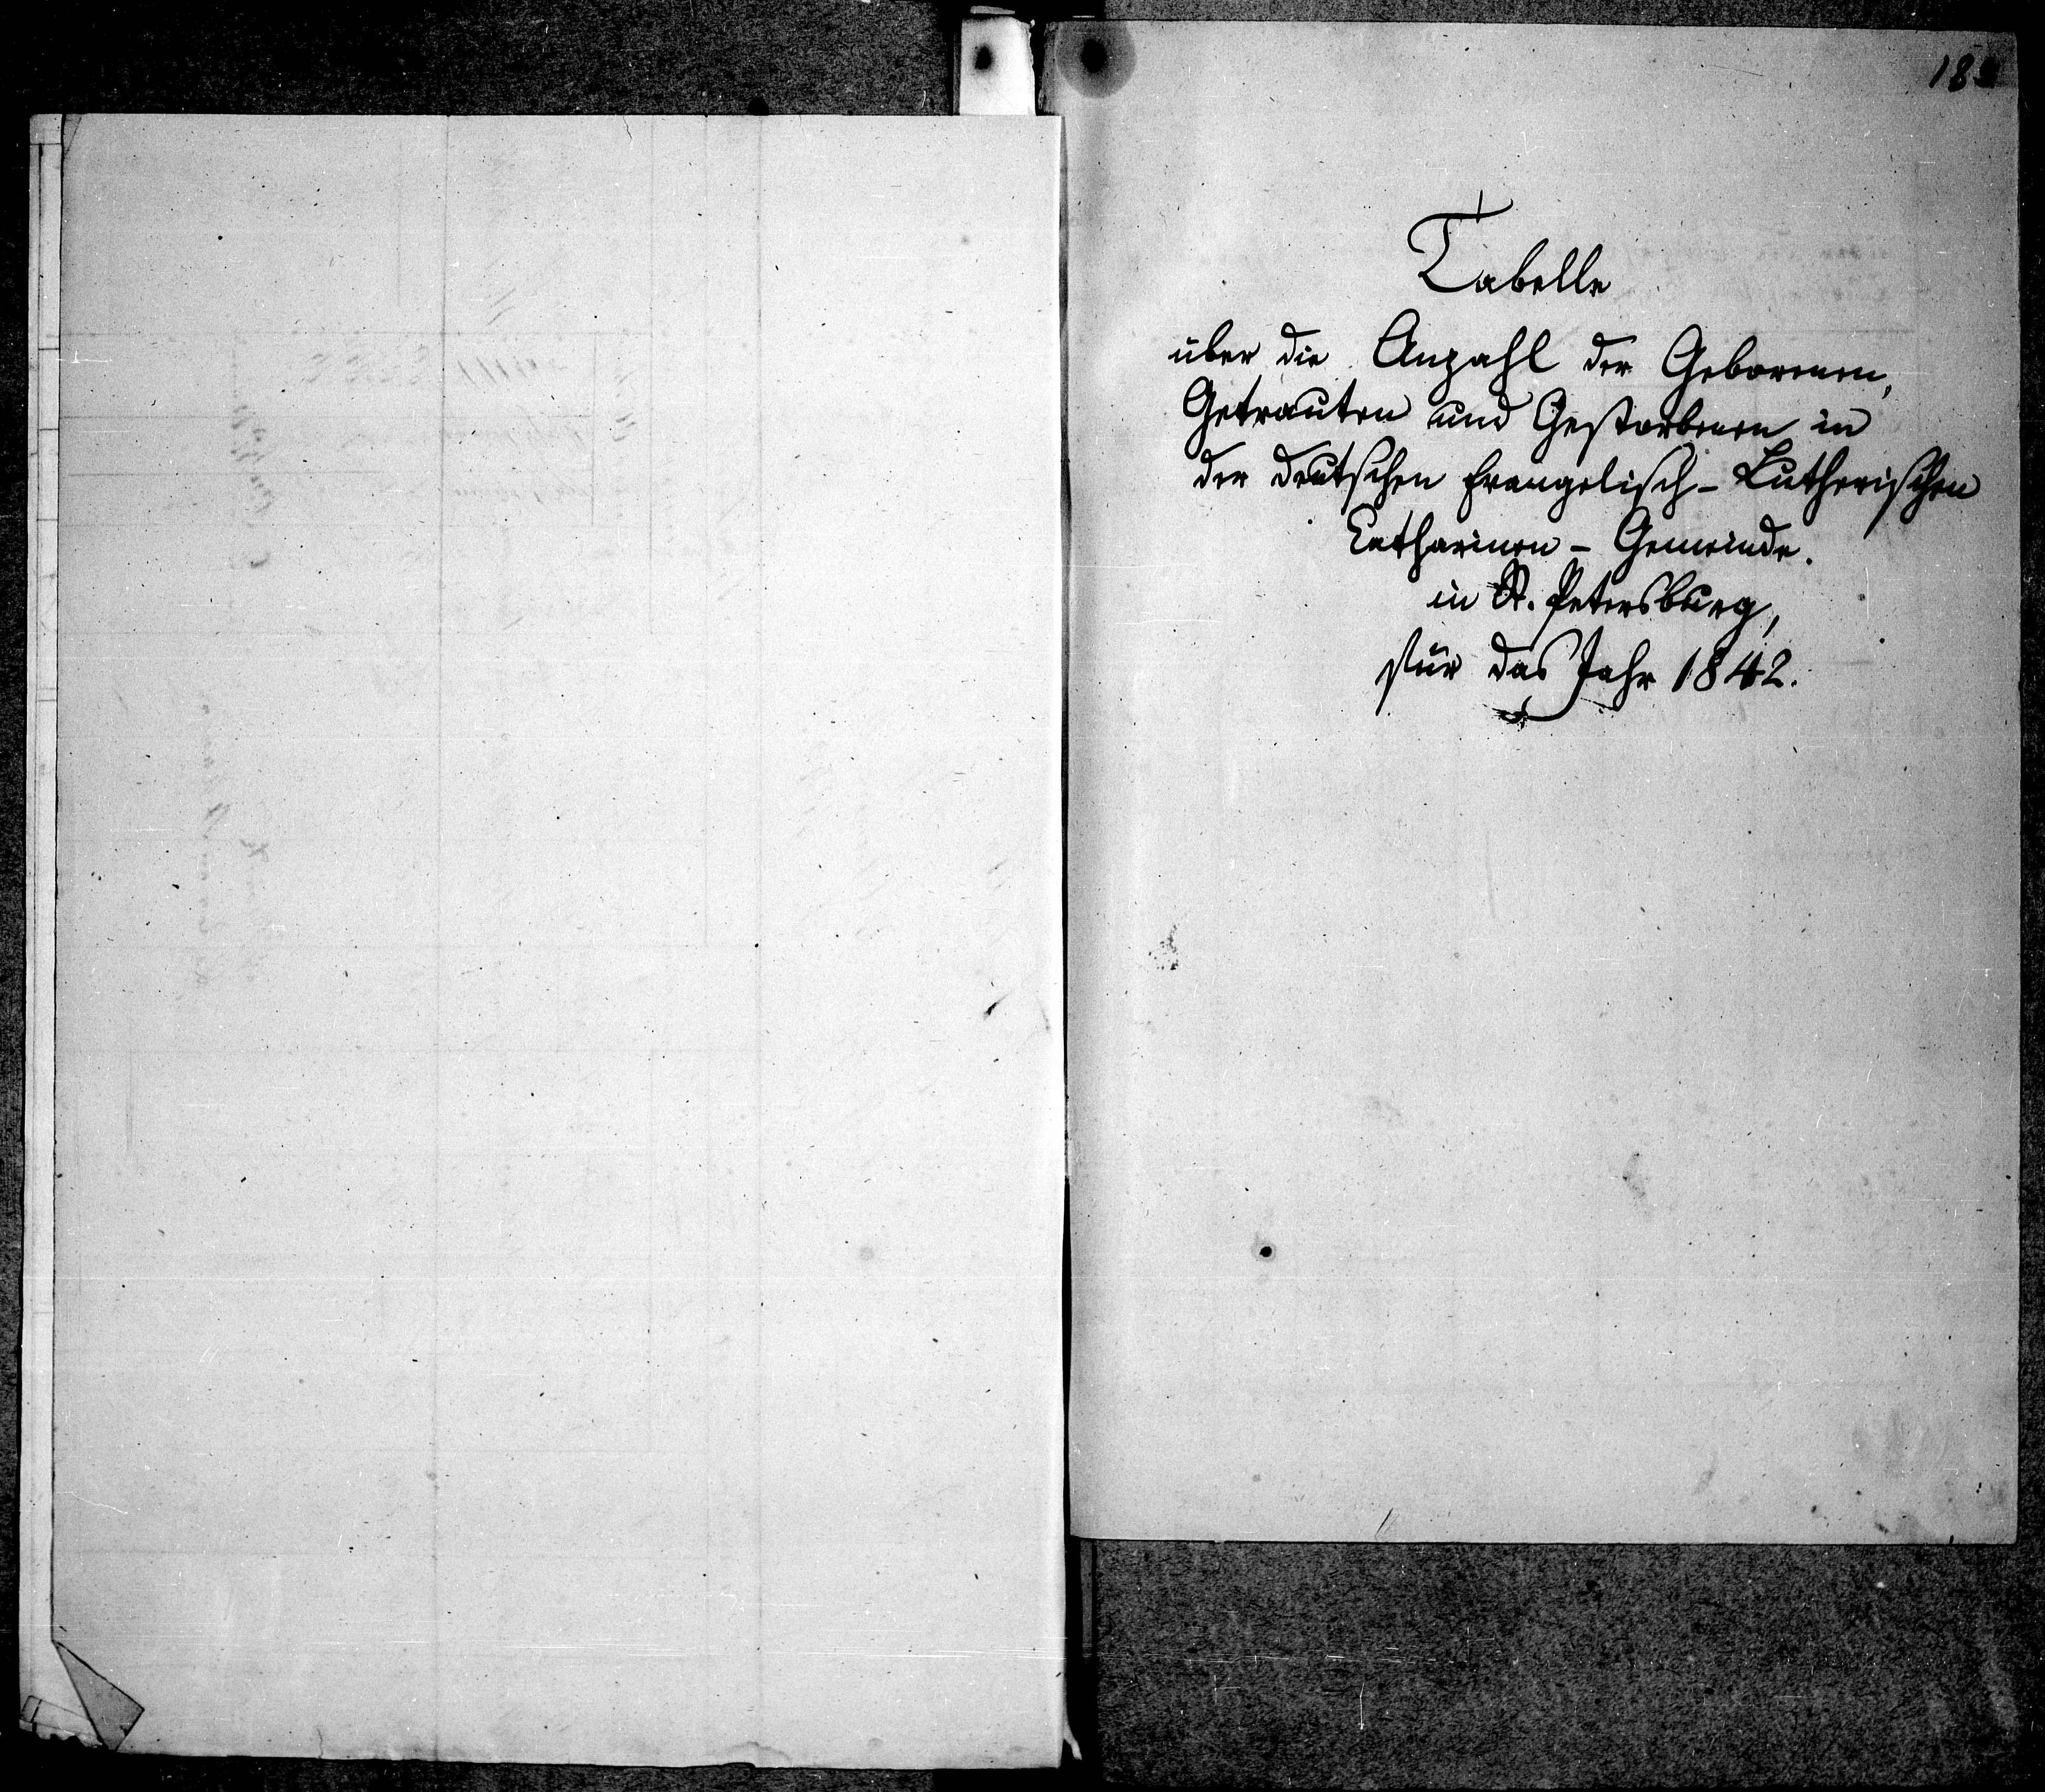 Tabelle
über die Anzahl der Geborenen,
Getrauten und Gestorbenen in
der deutschen Evangelisch-Lutherischen
Catharinen-Gemeinde.
in St. Petersburg,
für das Jahr 1842.